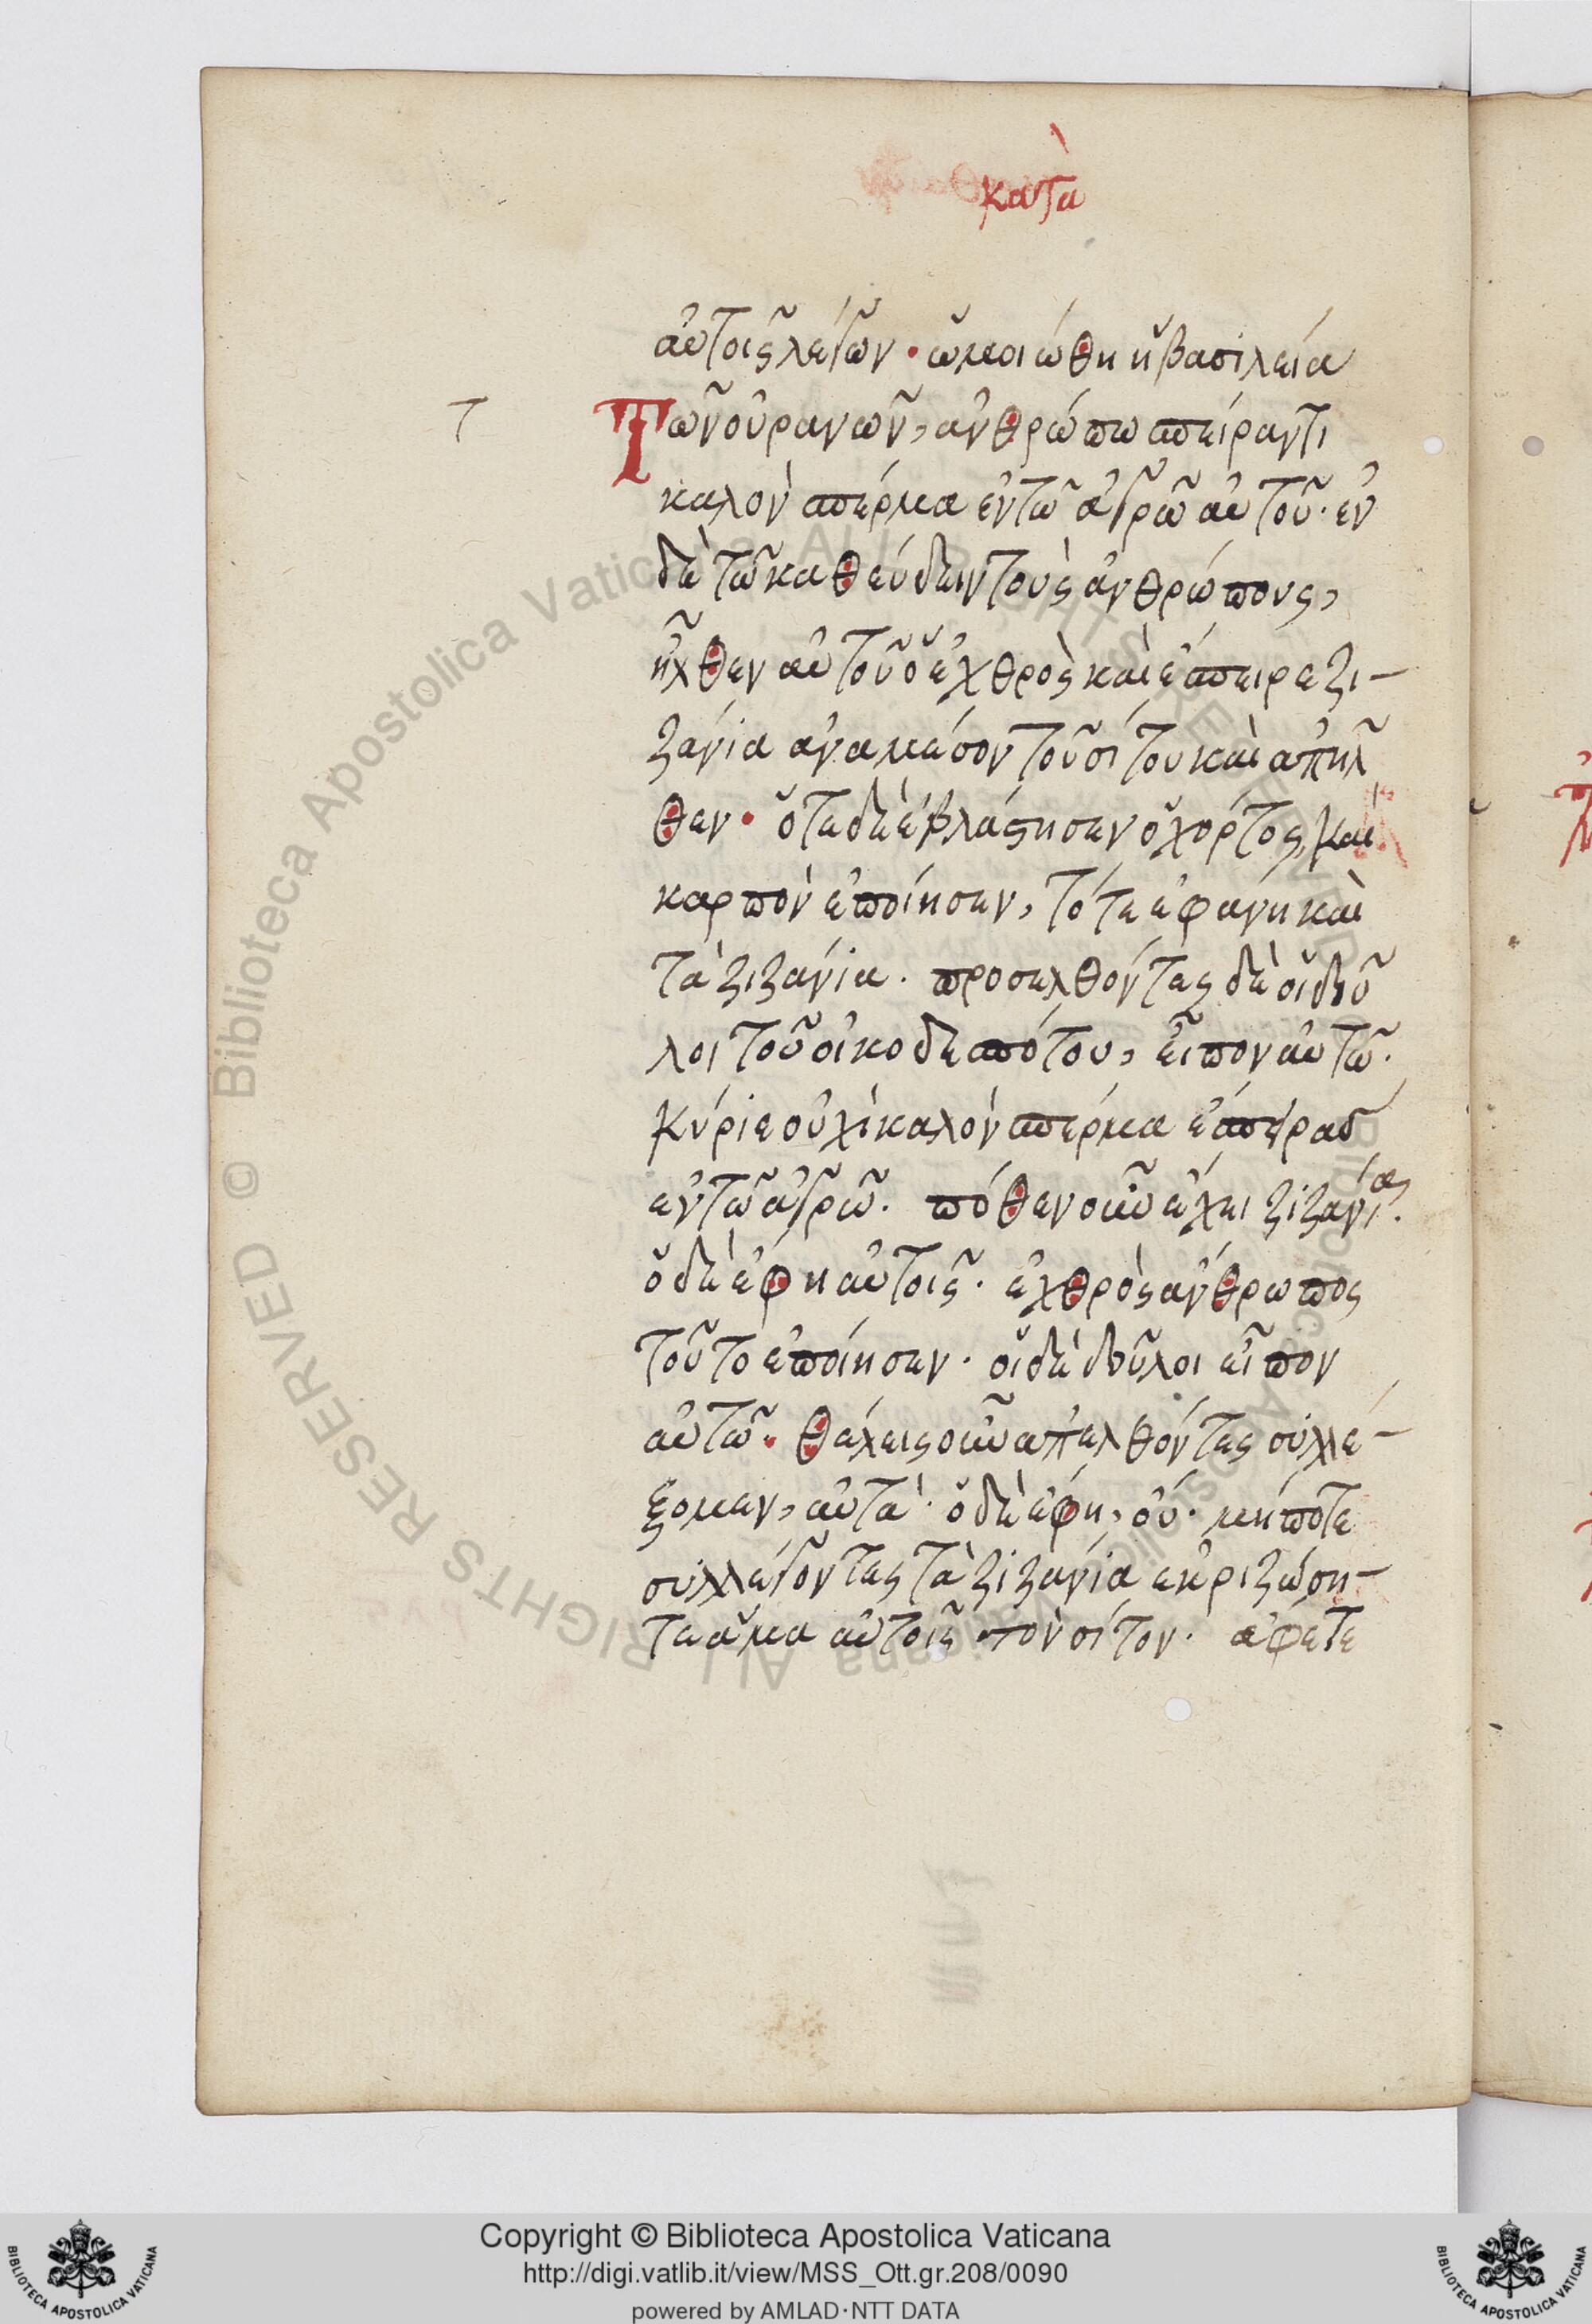 κατὰ
αὐτοῖς λέγων · ὡμοιώθη ἡ βασιλεία
τ
Τῶν οὐρανῶν, ἀνθρώπω σπείραντι
καλὸν σπέρμα ἐν τῶ ἀγρῶ αὐτοῦ · ἐν
δὲ τῶ καθεύδειν τοὺς ἀνθρώπους,
ἦλθεν αὐτοῦ ὁ ἐχθρὸς καὶ ἔσπειρε ζι-
ζάνια ἀναμέσον τοῦ σίτου καὶ ἀπῆλ
θεν · ὅτε δὲ ἐβλάστησεν ὁ χόρτος, καὶ
καρπὸν ἐποίησεν, τότε ἐφάνη καὶ
τὰ ζιζάνια · προσελθόντες δὲ οἱ δοῦ
λοι τοῦ οἰκοδεσπότου, εἶπον αὐτῶ ·
Κύριε οὐχὶ καλὸν σπέρμα ἔσπειρας
ἐν τῶ ἀγρῶ · πόθεν οὖν ἔχει ζιζάνια ·
ὁ δὲ ἔφη αὐτοῖς · ἐχθρὸς ἄνθρωπος
τοῦτο ἐποίησεν · οἱ δὲ δοῦλοι εἶπον
αὐτῶ · θέλεις οὖν ἀπελθόντες συλλέ-
ξομεν, αὐτά · ὁ δὲ ἔφη, οὔ · μήποτε
συλλέγοντες τὰ ζιζάνια ἐκριζώση-
τε ἅμα αὐτοῖς τὸν σίτον · ἄφετε
Copyright © Biblioteca Apostolica Vaticana
http://digi.vatlib.it/view/MSS_Ott.gr.208/0090
powered by AMLAD·NTT DATA
BIBLIOTECA APOSTOLICA VATICANA
BIBLIOTECA APOSTOLICA VATICANA
© Biblioteca Apostolica Vaticana ALL RIGHTS RESERVED